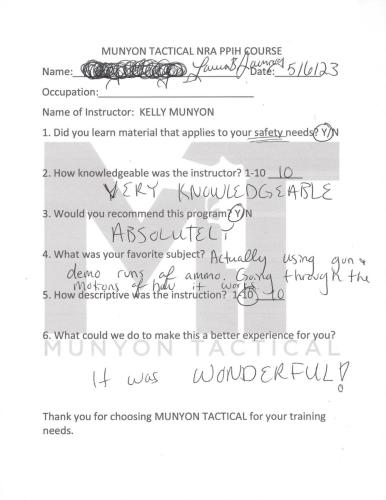 MUNYON TACTICAL NRA PPIH COURSE
Name: Date: 5/6/23
Occupation:
Name of Instructor: KELLY MUNYON
1. Did you learn material that applies to your safety needs? Y/N
2. How knowledgeable was the instructor? 1-10 10
VERY KNOWLEDGEABLE
3. Would you recommend this program? Y/N
ABSOLUTELY
4. What was your favorite subject? Actually using gun &
demo runs of ammo. Going through the
motions of how it works
5. How descriptive was the instruction? 1-10 10
6. What could we do to make this a better experience for you?
MUNYON TACTICAL
It was WONDERFUL!
Thank you for choosing MUNYON TACTICAL for your training
needs.